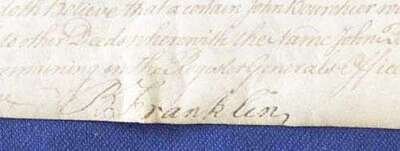 doth Believe that a certain John Rounhier
to other Deeds wherewith the same John
remaining in the Register Generals office
B Franklin